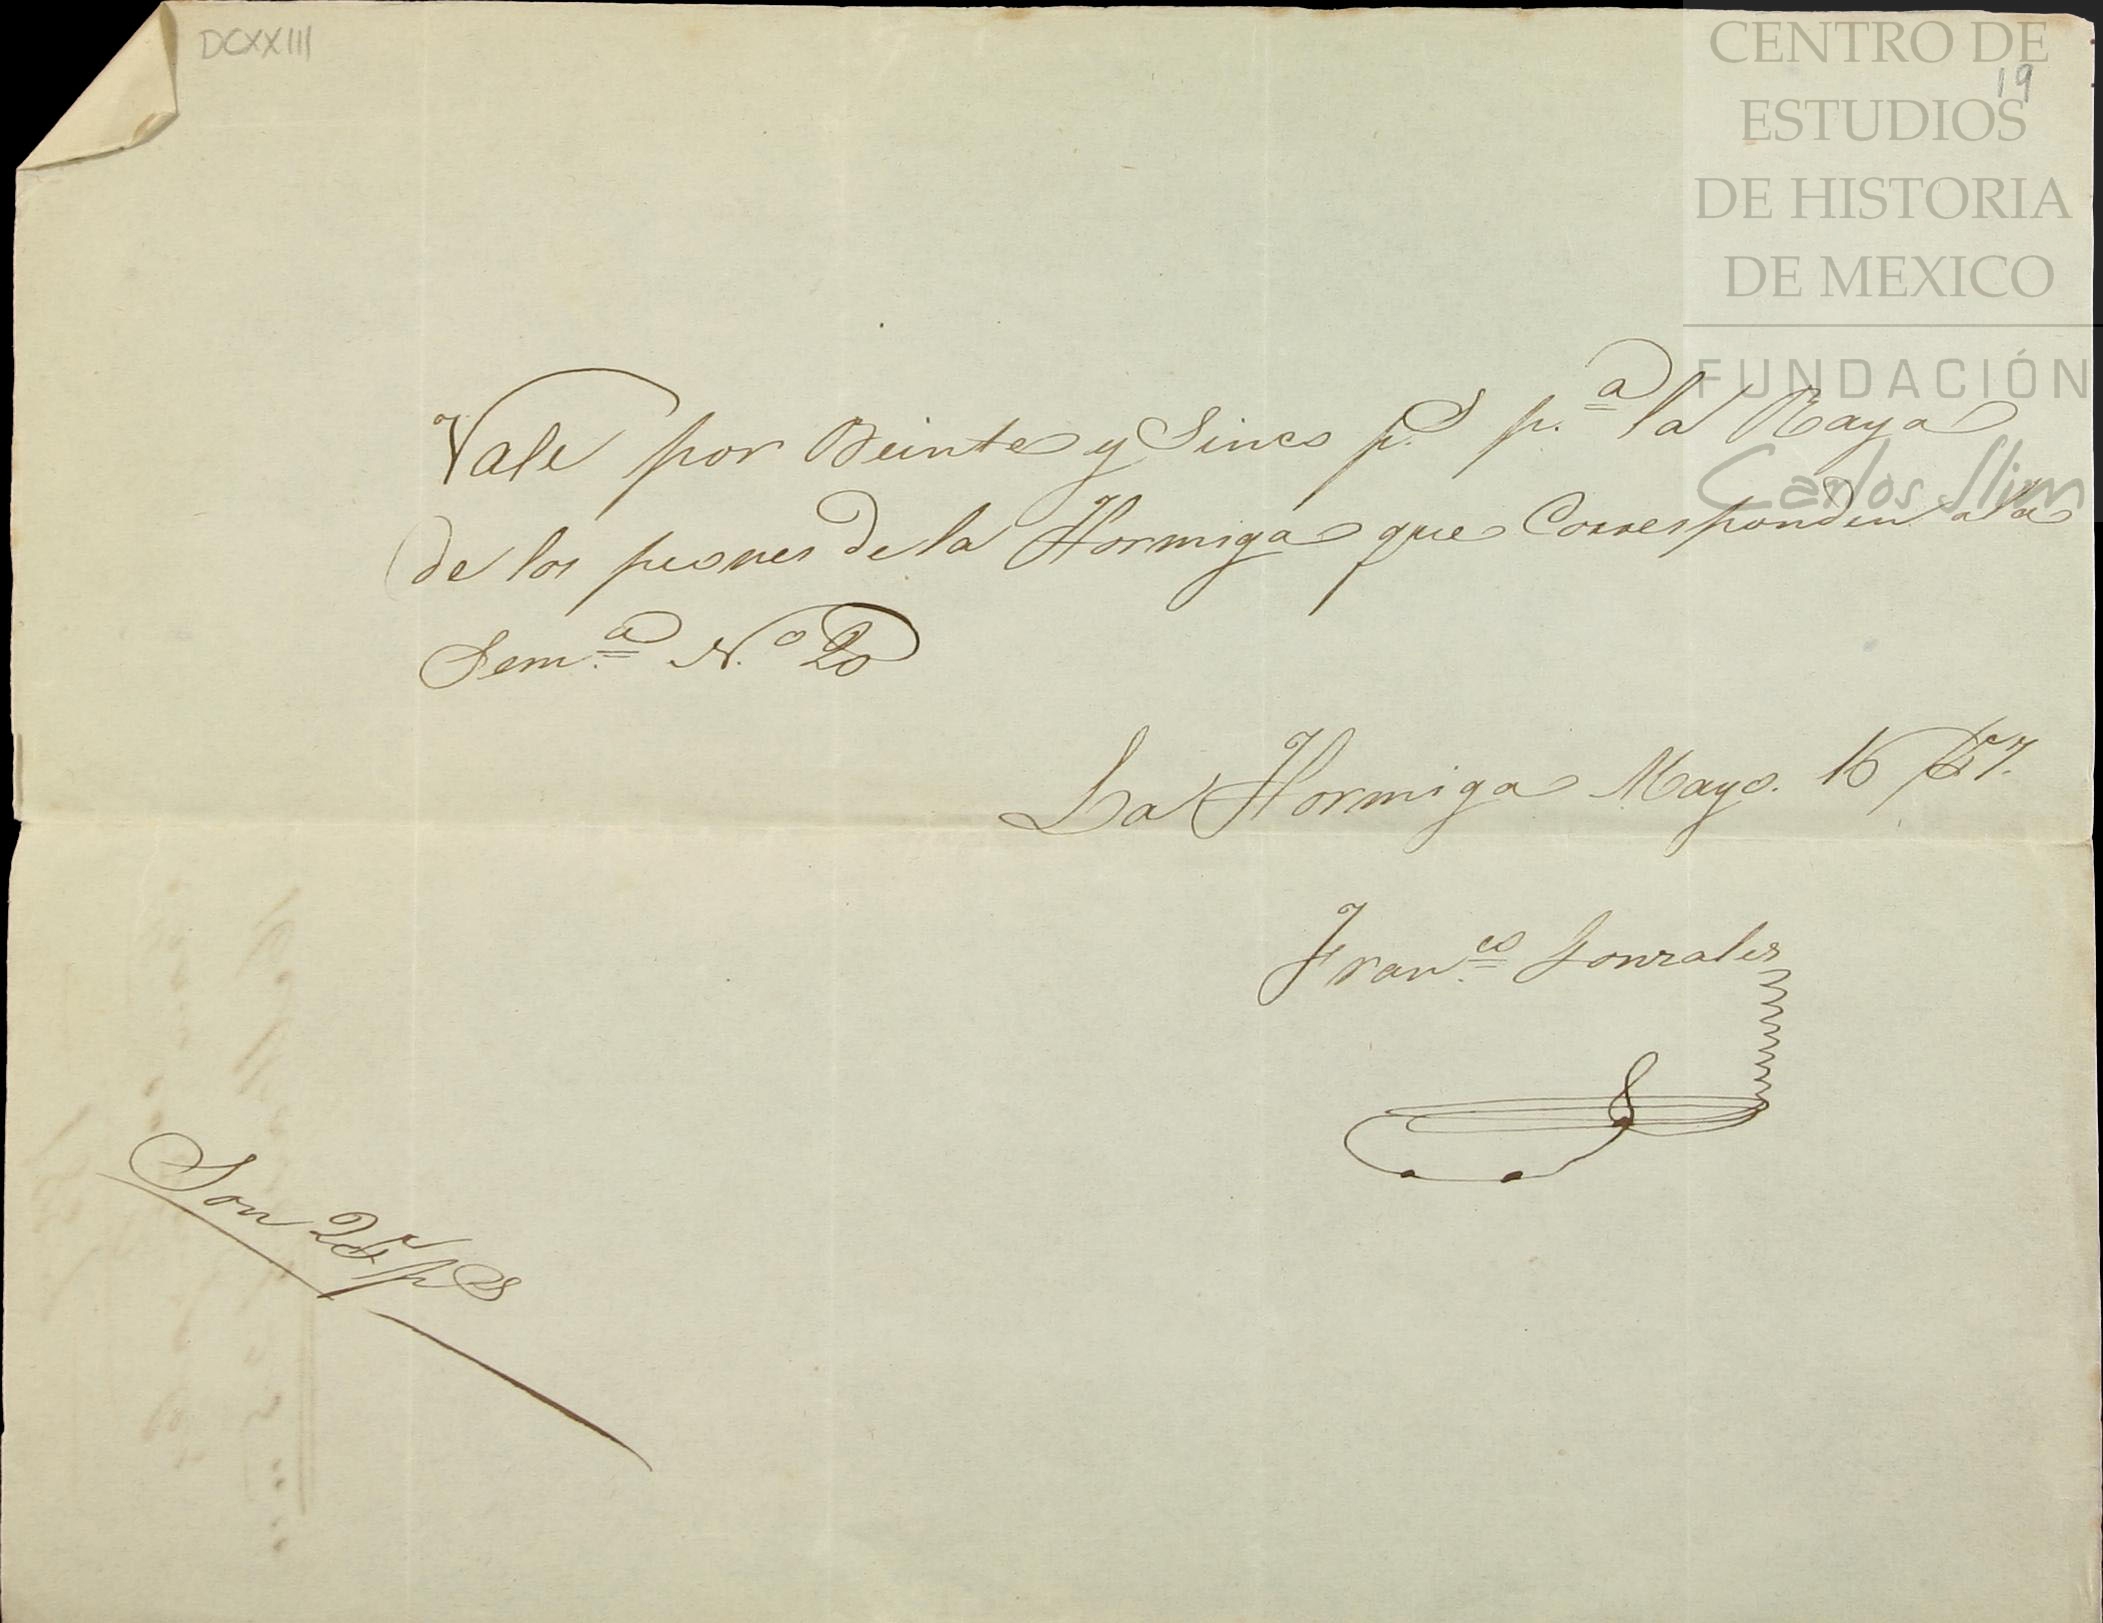 DCXXIII
CENTRO DE
19
ESTUDIOS
DE HISTORIA
DE MEXICO
FUNDACIÓN
Carlos Slim
Vale por Beinte y Sinco p.s p.a la Raya
de los peones de la Hormiga que Corresponden a la
Sem.a N.o 20
La Hormiga Mayo. 16/57.
Fran.co Gonzales
Son 25 p s